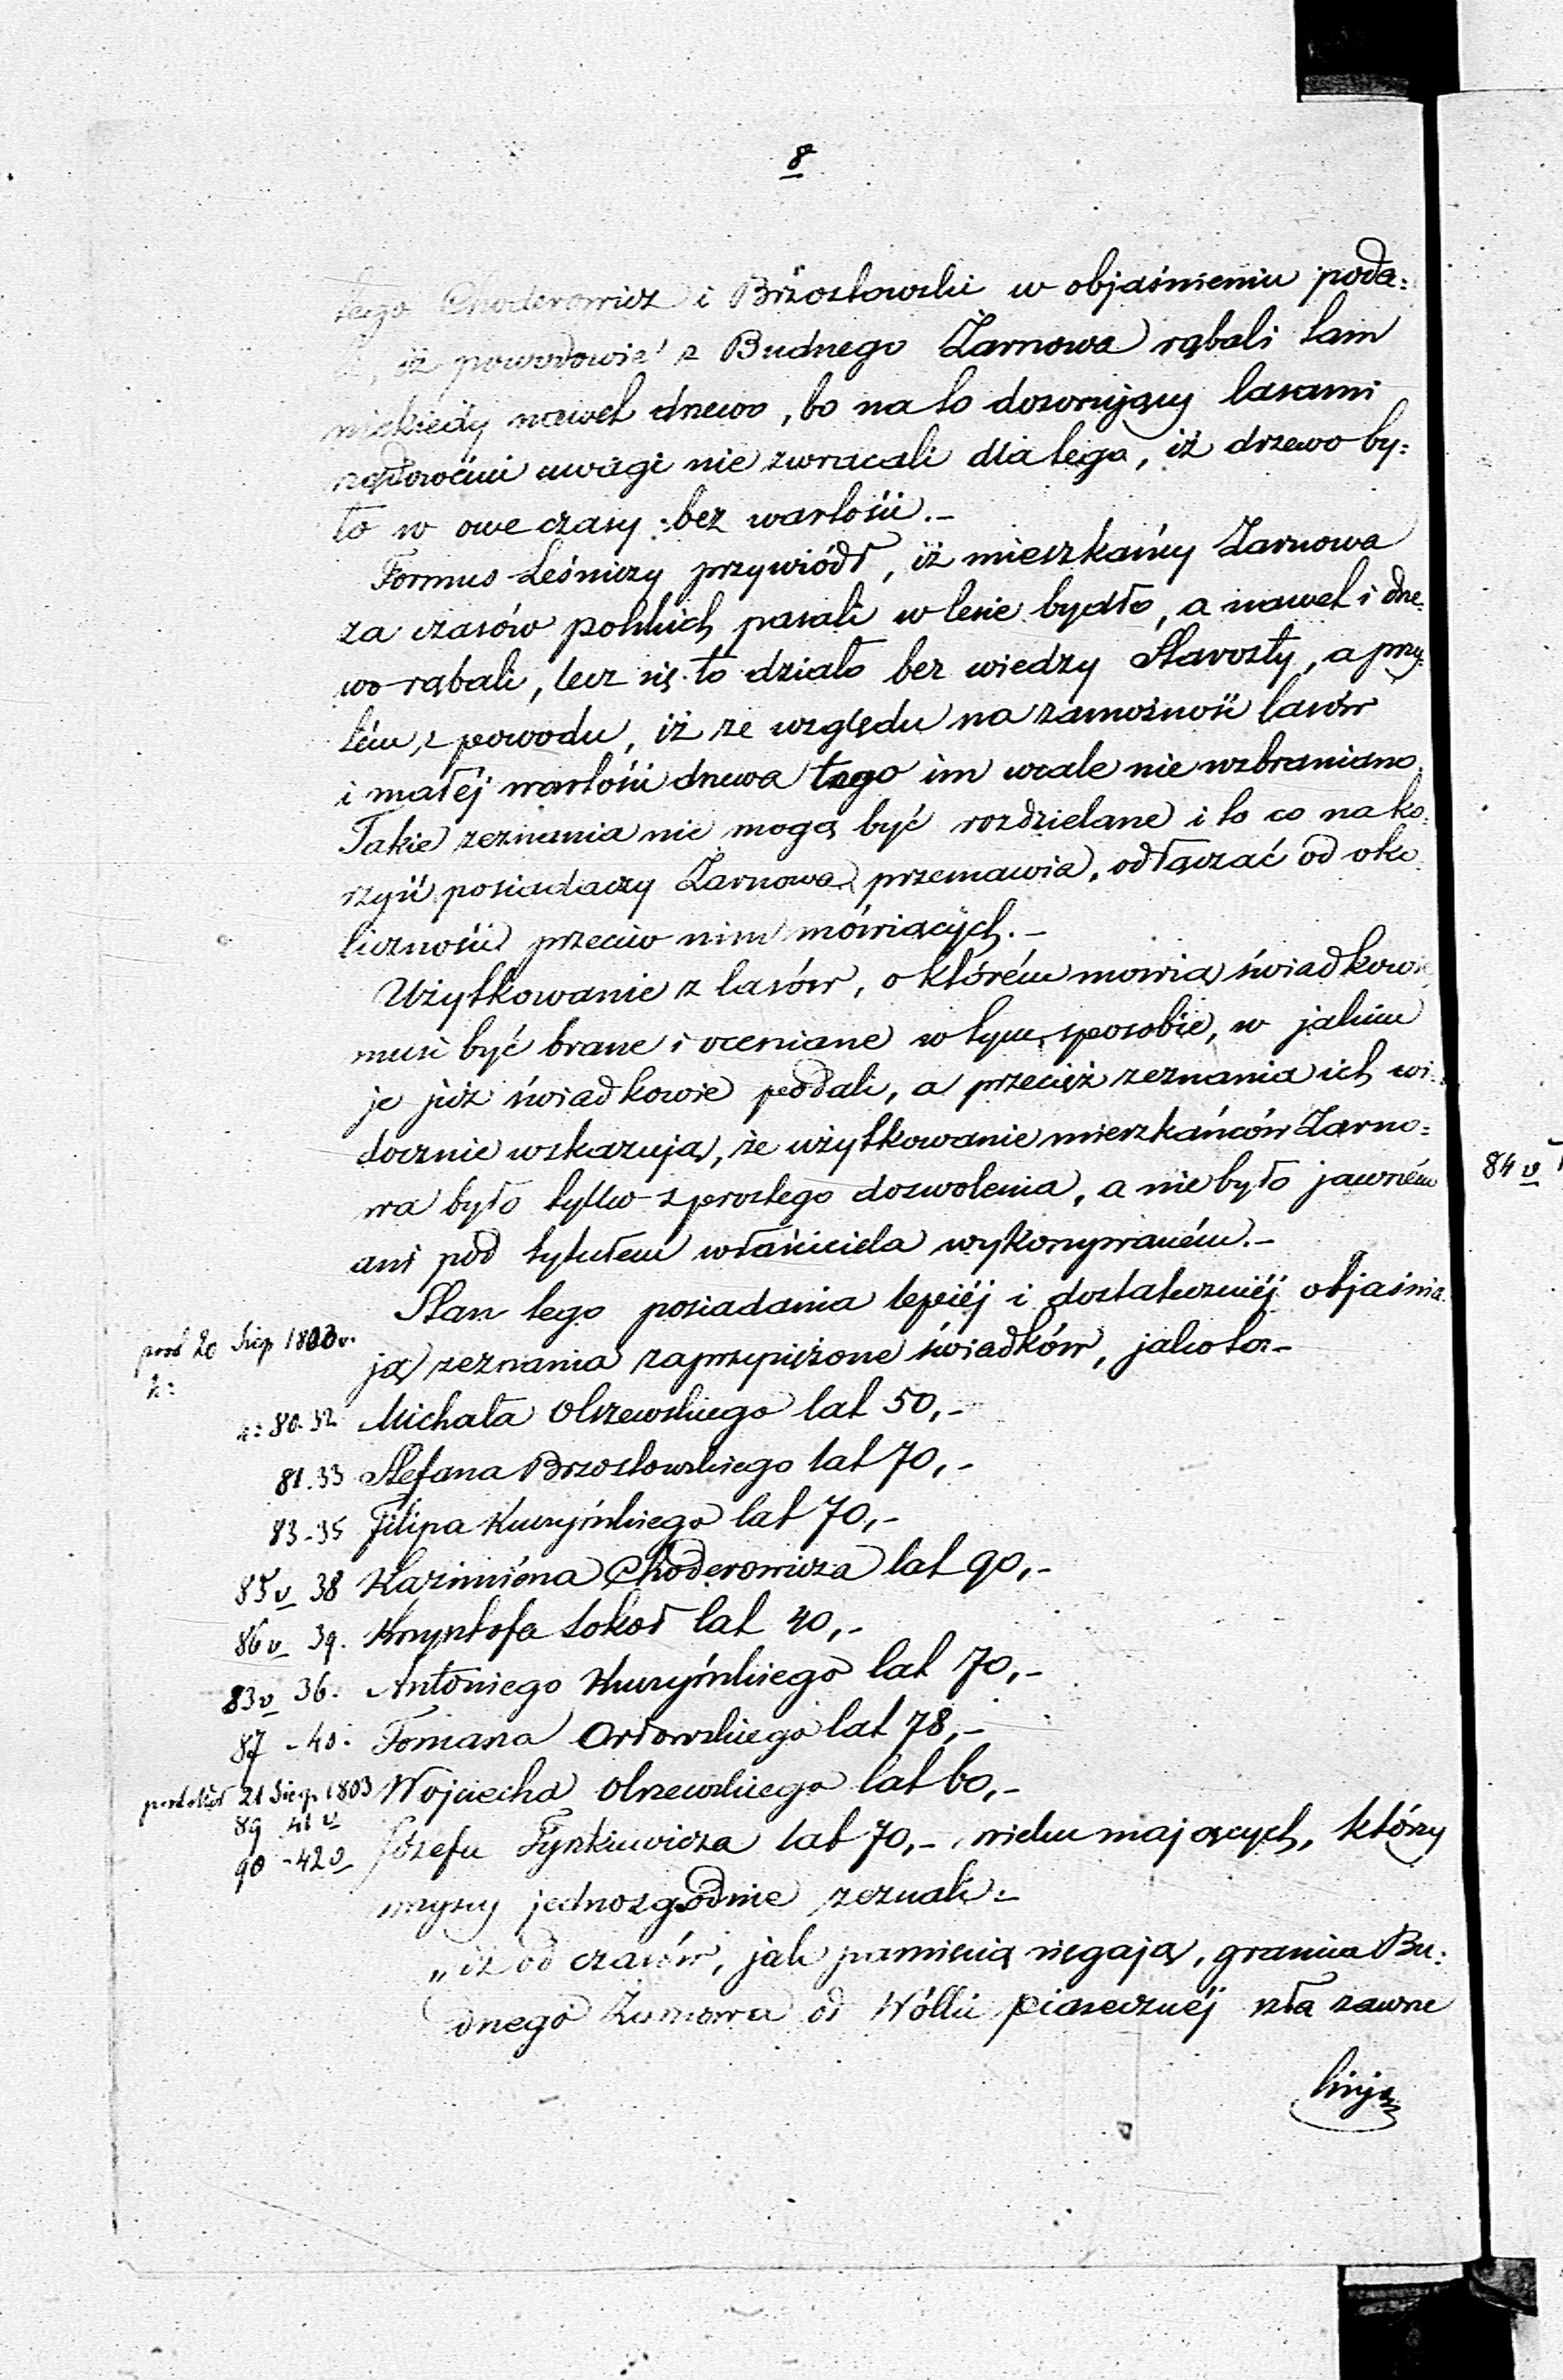 8
tego Choderowicz i Brzostowski w objaśnieniu poda:
li, iż powodowie z Budnego Żarnowa rąbali tam
niekiedy nawet drzewo, bo na to dozorujący lasami
rządowemi uwagi nie zwracali dla tego, iż drzewo by:
ło w owe czasy bez wartości.-
Formus Leśniczy przywiódł, iż mieszkańcy Żarnowa
za czasów polskich pasali w lesie bydło, a nawet i drze:
wo rąbali, lecz się to działo bez wiedzy Starosty, a przy:
tém, z powodu, iż ze względu na zamożność lasów
i małéj wartości drzewa tego im wcale nie wzbraniano.
Takie zeznania nie mogą być rozdzielane i to co na ko:
rzyść posiadaczy Żarnowa przemawia, odłączać od oko:
liczności przeciw nim mówiących.-
Użytkowanie z lasów, o którém mówią świadkowie,
musi być brane i oceniane w tym sposobie, w jakim
je już świadkowie podali, a przecież zeznania ich wi:
docznie wskazują, że użytkowanie mieszkańców Żarno:
wa było tylko z prostego dozwolenia, a nie było jawném
84 v
ani pod tytułem właściciela wykonywaném.-
Stan tego posiadania lepiéj i dostateczniéj objaśnia:
prot 20 Sier 1803 r.
ją zeznania zaprzysiężone świadków, jako to:-
k:
k: 80.32 Michała Olszewskiego lat 50,-
81.33 Stefana Brzostowskiego lat 70,-
83-35 Filipa Kuczyńskiego lat 70,-
85 v 38 Kazimiérza Choderowicza lat 90,-
86 v 39. Krzysztofa Sokoł lat 40,-
83 v 36. Antoniego Kuczyńskiego lat 70,-
87 - 40. Tomasza Orłowskiego lat 78,-
21 Sierp. 1803 Wojciecha Olszewskiego lat 60,-
89 41 v
90 - 42 v Józefa Fynkiewicza lat 70,- wieku mających, którzy
wszyscy jednozgodnie zeznali:-
„iż od czasów, jak pamięcią sięgają, granica Bu:
dnego Żarnowa od Wólki piaseczněj szła zawsze
liniją